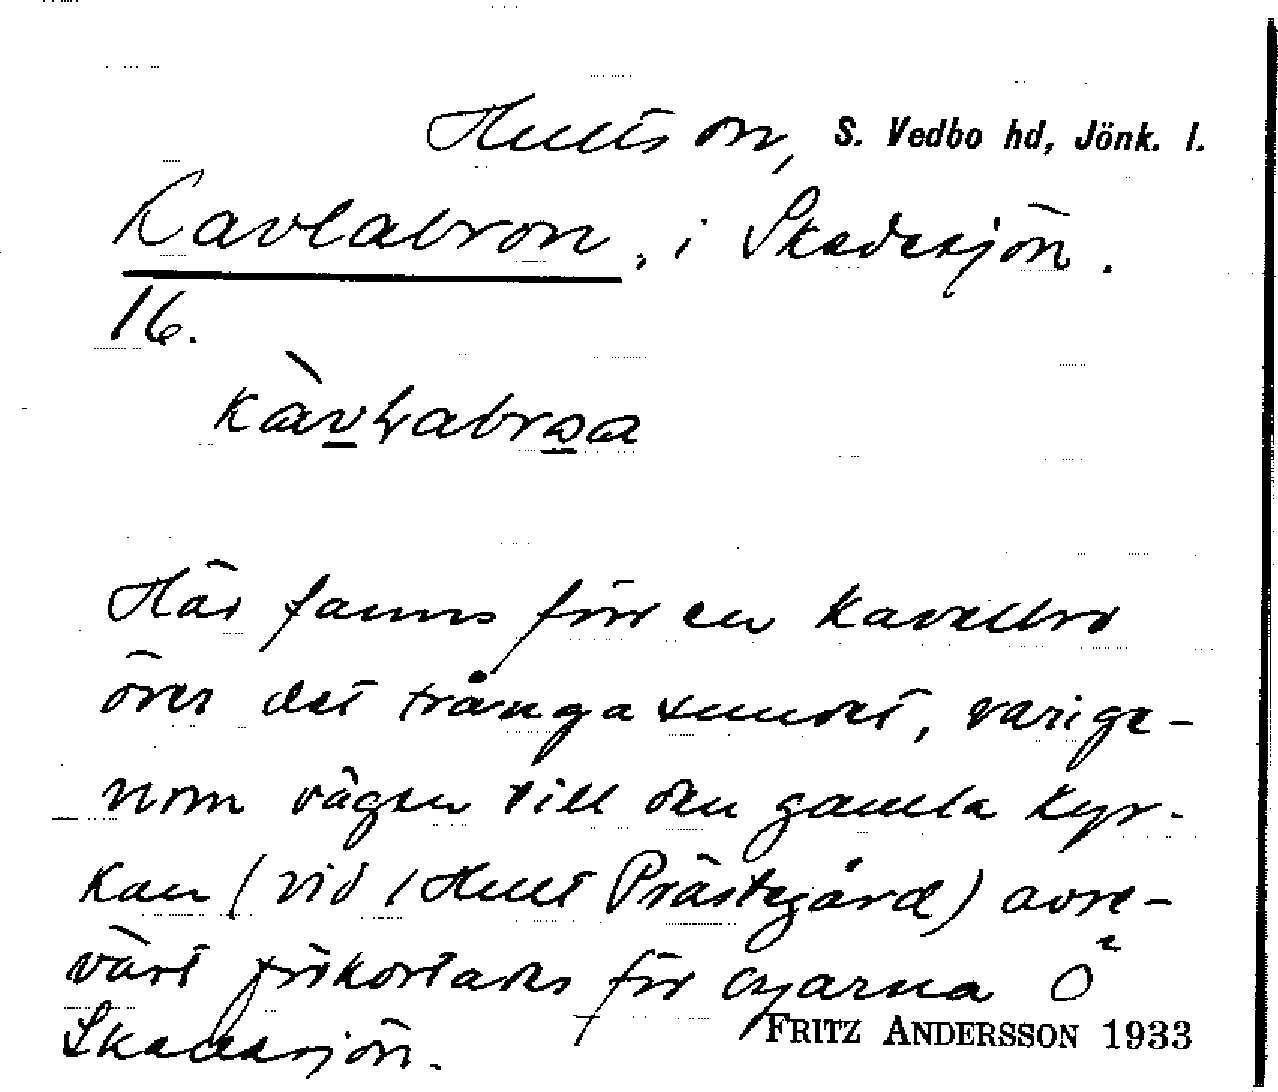 Hults sn, S. Vedbo hd, Jönk. l.
Kavlabron, i Skedesjön.
16.
Här fanns förr en kavelbro
över det trånga sundet, varige-
nom vägen till den gamla kyr-
kan (vid Hult Prästegård) avse-
värt förkortades för byarna Ö
Skedesjön.
FRITZ ANDERSSON 1933